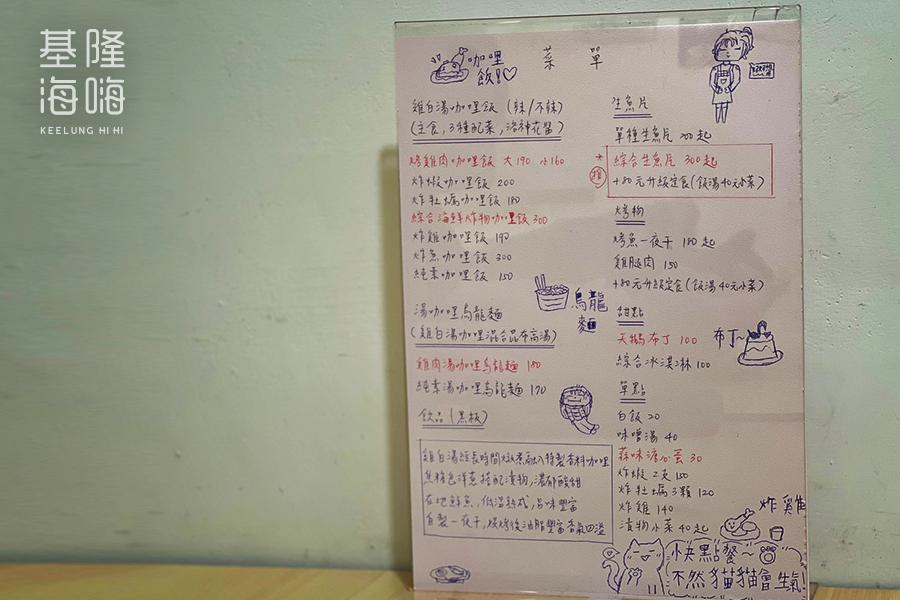 基隆
海嗨
KEELUNG HI HI
咖哩
飯!
菜單
雞白湯咖哩飯 (辣/不辣)
(主食,3種配菜,洛神花醬)
烤雞肉咖哩飯 大190 小160
炸蝦咖哩飯 200
炸牡蠣咖哩飯 180
綜合海鮮炸物咖哩飯 300
炸雞咖哩飯 190
炸魚咖哩飯 300
純素咖哩飯 150
烏龍
麵
湯咖哩烏龍麵
(雞白湯咖哩混合昆布高湯)
雞肉湯咖哩烏龍麵 180
純素湯咖哩烏龍麵 170
飲品 (黑板)
雞白湯經長時間燉煮融入特製香料咖哩
焦糖色洋蔥搭配漬物,濃郁酸甜
在地鮮魚,低溫熟成,品味豐富
自製一夜干,燒烤後油脂豐富香氣四溢
生魚片
單種生魚片 200起
推
綜合生魚片 300起
+80元升級定食(飯湯40元小菜)
烤物
烤魚一夜干 180起
雞腿肉 150
+80元升級定食(飯湯40元小菜)
甜點
天鵝布丁 100
綜合冰淇淋 100
布丁~
單點
白飯 20
味噌湯 40
蒜味溏心蛋 30
炸蝦 2支 150
炸牡蠣3顆 120
炸雞 140
漬物小菜 40起
炸雞
快點餐~
不然貓貓會生氣!